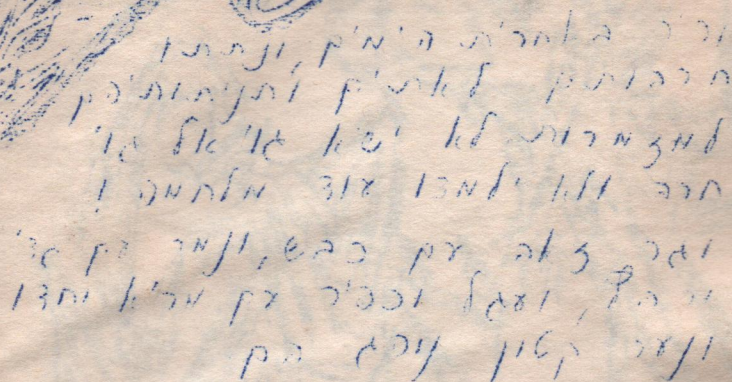 באחרית הימים, ונתתו
חרבותם לאתים וחניתותיהם
למזמרות לא ישא גוי אל גוי
חרה ולא ילמדו עוד מלחמה!
וגר זאב עם כבש, ונמר עם גדי
ועגל וכפיר עם מריא יחדו
ונער קטון נוהג בם